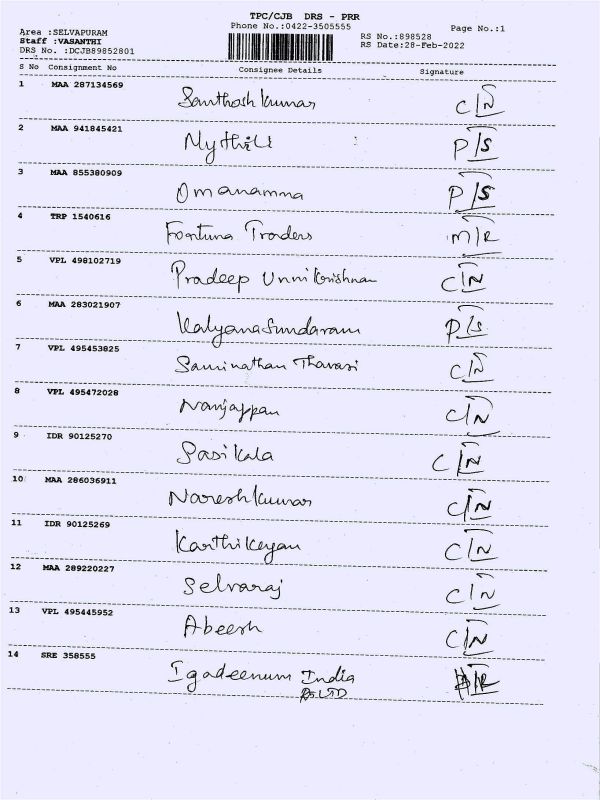 TPC/CJB DRS - PRR
Area :SELVAPURAM Phone No.:0422-3505555 Page No.:1
Staff :VASANTHI RS No.:898528
DRS No. :DCJB89852801 RS Date:28-Feb-2022
S No Consignment No Consignee Details Signature
1 MAA 287134569 Santhosh kumar C/N
2 MAA 941845421 Mythili P/S
3 MAA 855380909 Omanamma P/S
4 TRP 1540616 Fortuna Traders M/R
5 VPL 498102719 Pradeep Unnikrishnan C/N
6 MAA 283021907 Kalyanasundaram P/S
7 VPL 495453825 Saminathan Thavasi C/N
8 VPL 495472028 Nanjappan C/N
9 IDR 90125270 Sasikala C/N
10 MAA 286036911 Nareshkumar C/N
11 IDR 90125269 Karthikeyan C/N
12 MAA 289220227 Selvaraj C/N
13 VPL 495445952 Abeesh C/N
14 SRE 358555 Igadeenum India
LTD